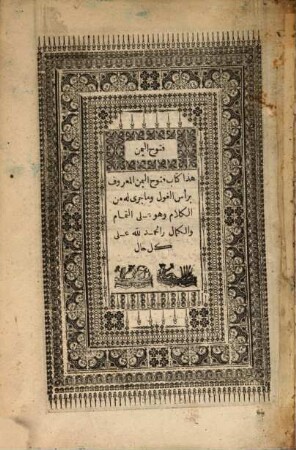 فتوح اليمن
هذا كتاب فتوح اليمن المعروف
برأس الغول وما جرى له من
الكلام وهو على التمام
والكمال والحمد لله على
كل حال